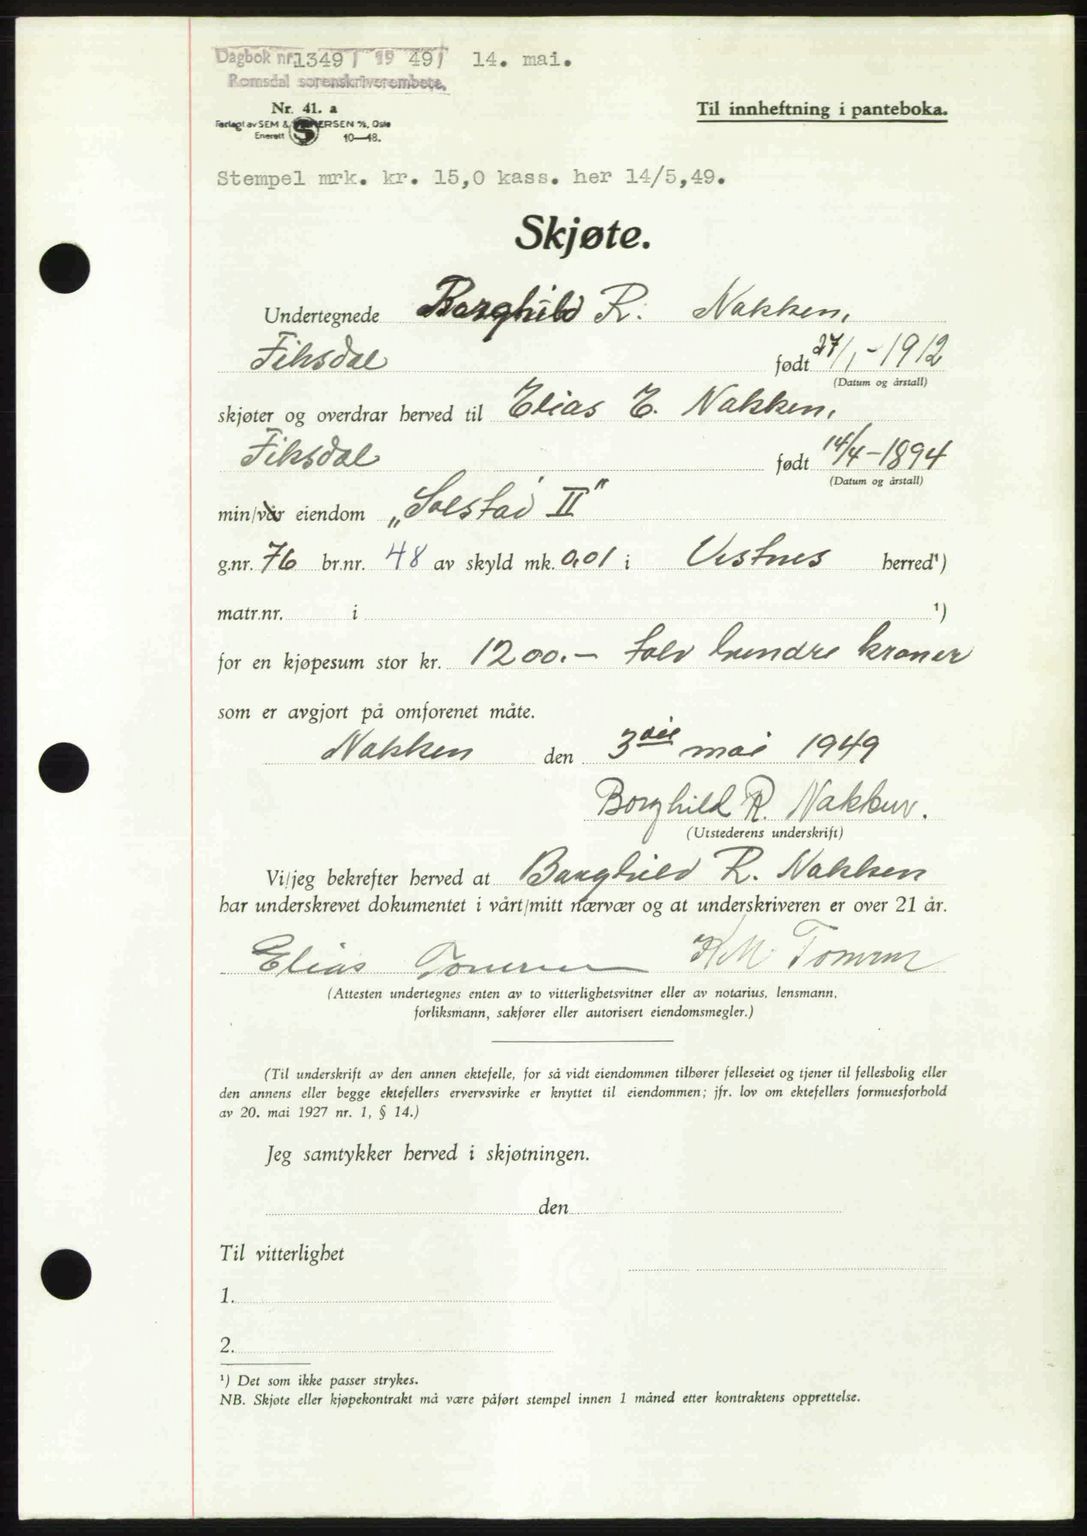 Dagbok nr. 1349 / 19 49 / 14. mai.
Romsdal sorenskriverembete.
Nr. 41. a
Til innheftning i panteboka.
Forlagt av SEM & ERSEN A/S, Oslo
Enerett 10—48.
Stempel mrk. kr. 15,0 kass. her 14/5,49.
Skjøte.
Undertegnede Borghild R. Nakken,
Fiksdal født 27/1-1912
(Datum og årstall)
skjøter og overdrar herved til Elias E. Nakken,
Fiksdal født 14/4-1894
(Datum og årstall)
min/vår eiendom „Solstad II"
g.nr. 76 br.nr. 48 av skyld mk. 0,01 i Vestnes herred¹)
matr.nr. i ¹)
for en kjøpesum stor kr. 1200.- tolv hundre kroner
som er avgjort på omforenet måte.
Nakken den 3die mai 1949
Borghild R. Nakken.
(Utstederens underskrift)
Vi/jeg bekrefter herved at Borghild R. Nakken
har underskrevet dokumentet i vårt/mitt nærvær og at underskriveren er over 21 år.
Elias Tomren K M Tomren
(Attesten undertegnes enten av to vitterlighetsvitner eller av notarius, lensmann,
forliksmann, sakfører eller autorisert eiendomsmegler.)
(Til underskrift av den annen ektefelle, for så vidt eiendommen tilhører felleseiet og tjener til fellesbolig eller
den annens eller begge ektefellers ervervsvirke er knyttet til eiendommen; jfr. lov om ektefellers formuesforhold
av 20. mai 1927 nr. 1, § 14.)
Jeg samtykker herved i skjøtningen.
den
Til vitterlighet
1.
2.
¹) Det som ikke passer strykes.
NB. Skjøte eller kjøpekontrakt må være påført stempel innen 1 måned etter kontraktens opprettelse.